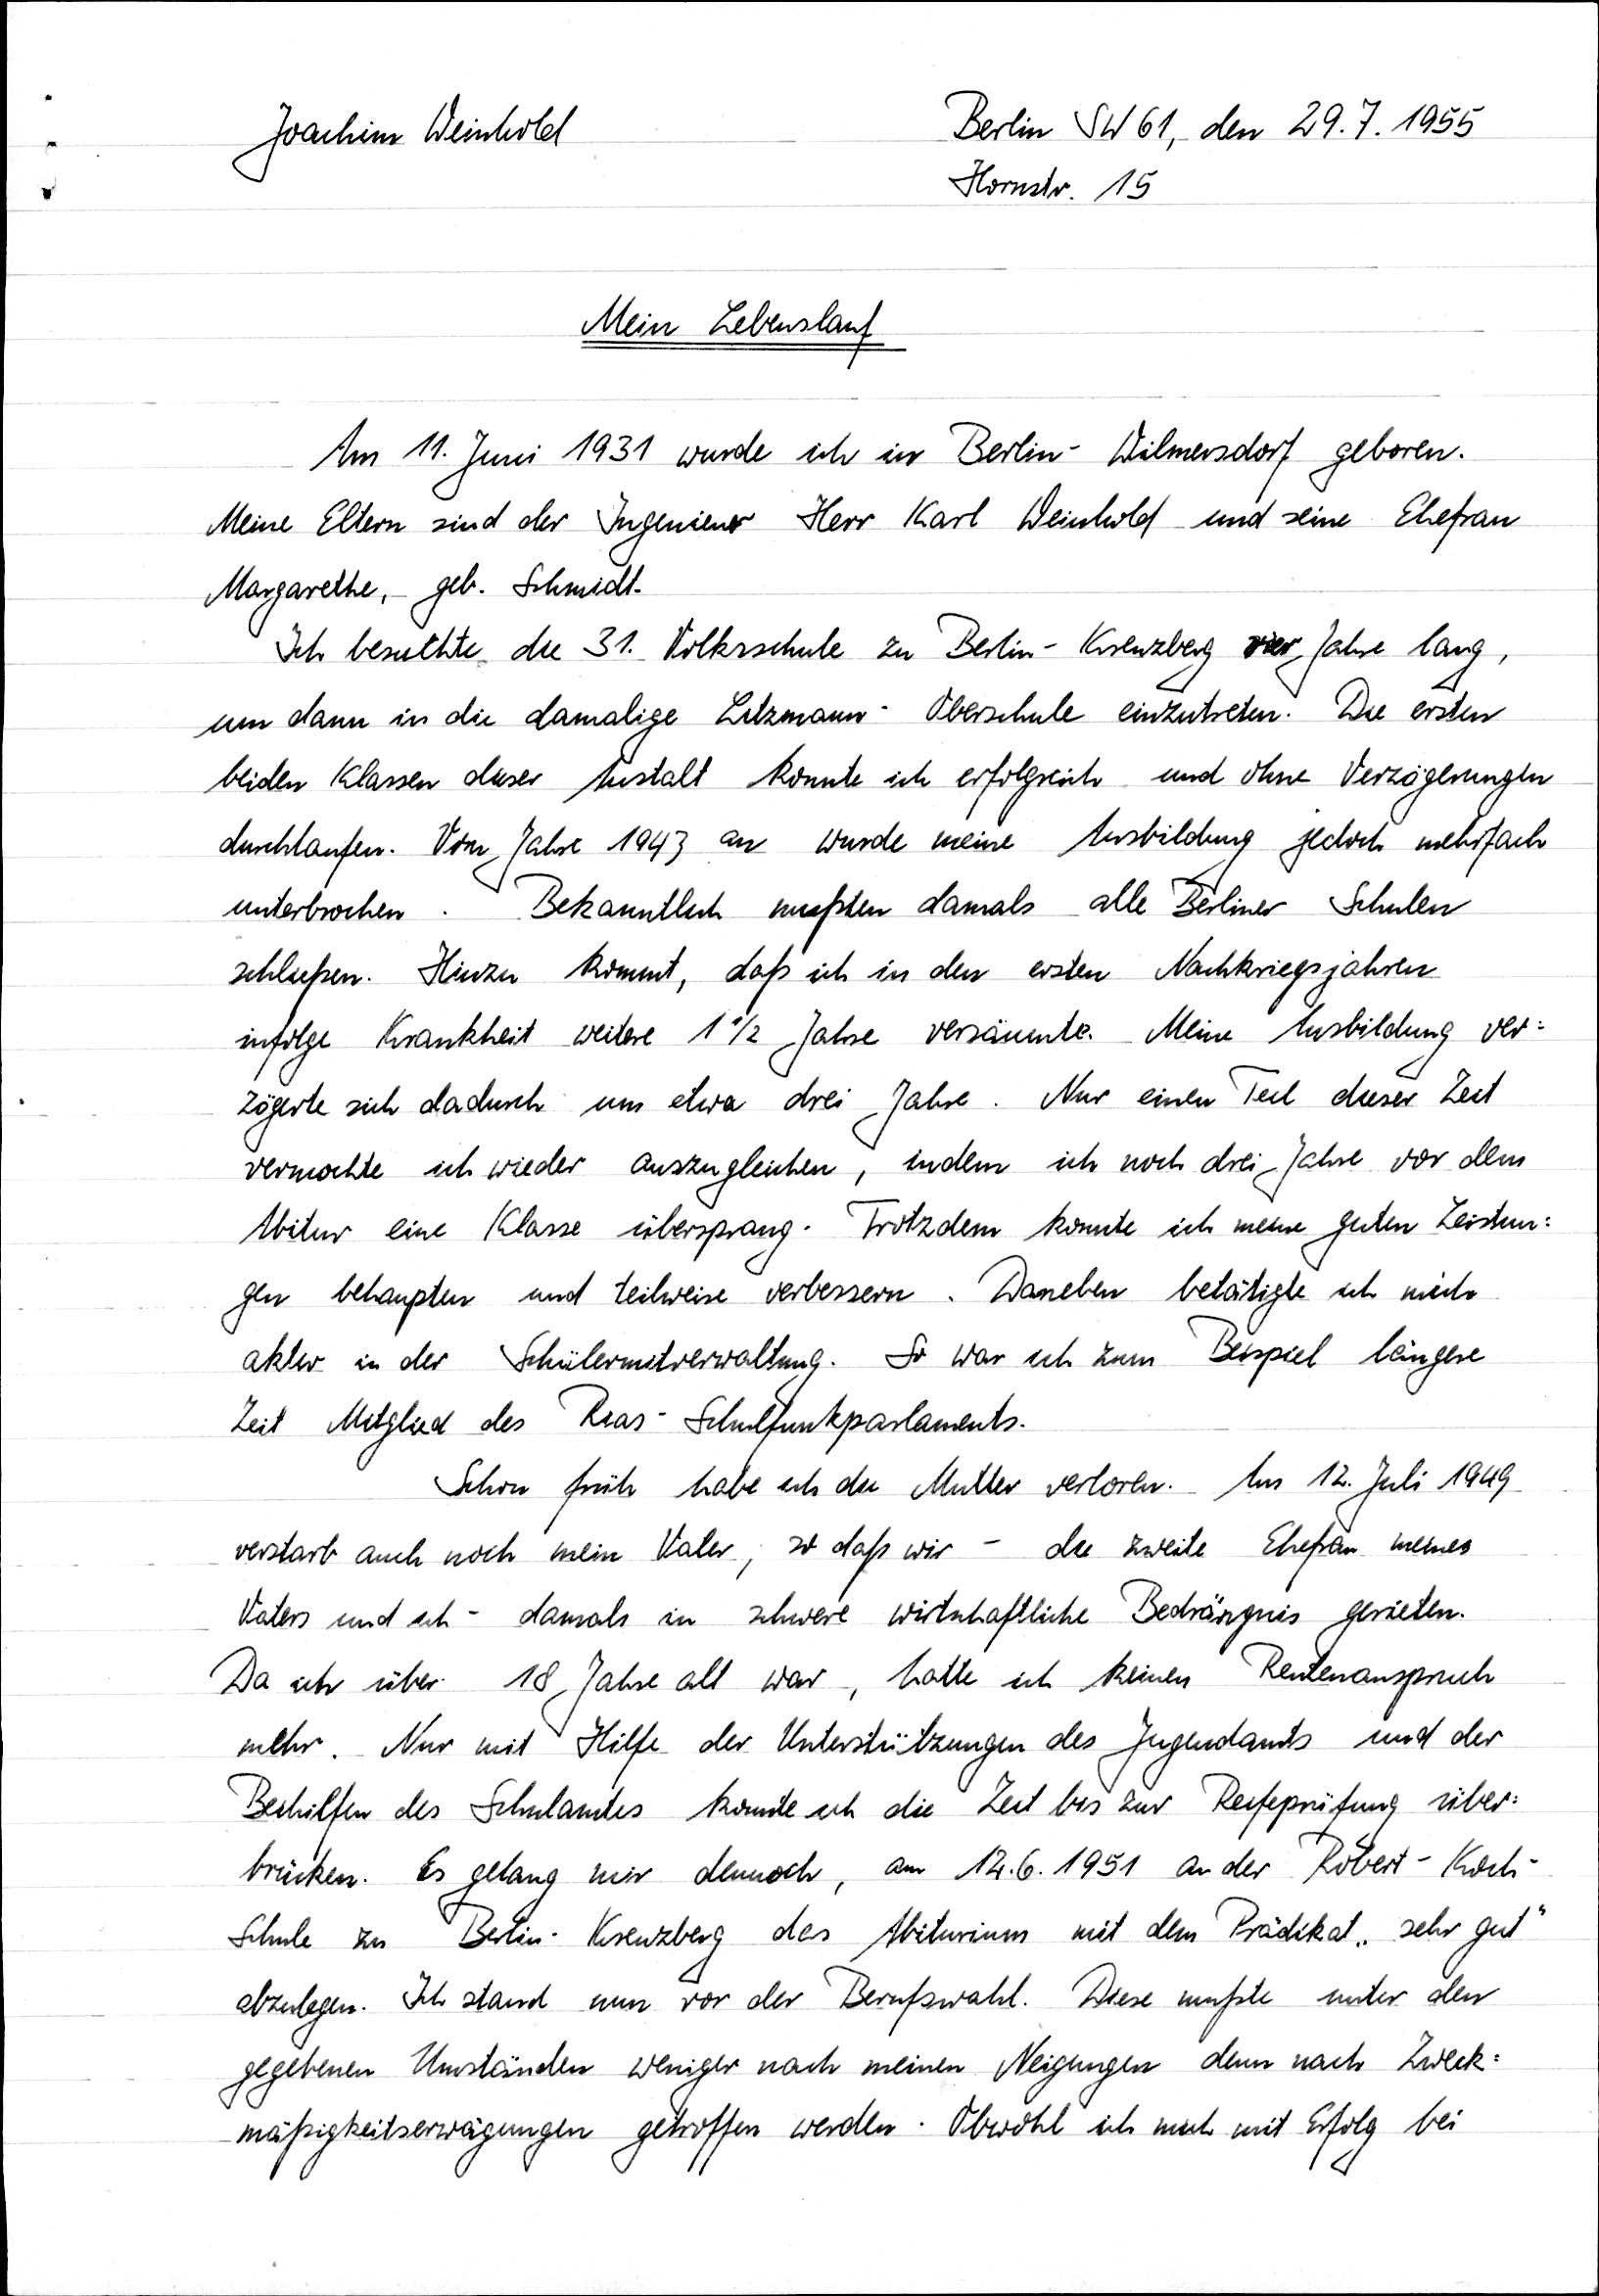 Joachim Weinhold
Berlin SW 61, den 29.7.1955
Hornstr. 15
Mein Lebenslauf
Am 11. Juni 1931 wurde ich in Berlin-Wilmersdorf geboren.
Meine Eltern sind der Ingenieur Herr Karl Weinhold und seine Ehefrau
Margarethe, geb. Schmidt.
Ich besuchte die 31. Volksschule zu Berlin-Kreuzberg vier Jahre lang,
um dann in die damalige Litzmann-Oberschule einzutreten. Die ersten
beiden Klassen dieser Anstalt konnte ich erfolgreich und ohne Verzögerungen
durchlaufen. Vom Jahre 1943 an wurde meine Ausbildung jedoch mehrfach
unterbrochen. Bekanntlich mußten damals alle Berliner Schulen
schließen. Hinzu kommt, daß ich in den ersten Nachkriegsjahren
infolge Krankheit weitere 1 1/2 Jahre versäumte. Meine Ausbildung ver=
zögerte sich dadurch um etwa drei Jahre. Nur einen Teil dieser Zeit
vermochte ich wieder auszugleichen, indem ich noch drei Jahre vor dem
Abitur eine Klasse übersprang. Trotzdem konnte ich meine guten Leistun=
gen behaupten und teilweise verbessern. Daneben betätigte ich mich
aktiv in der Schülermitverwaltung. So war ich zum Beispiel längere
Zeit Mitglied des Rias-Schulfunkparlaments.
Schon früh habe ich die Mutter verloren. Am 12. Juli 1949
verstarb auch noch mein Vater, so daß wir - die zweite Ehefrau meines
Vaters und ich - damals in schwere wirtschaftliche Bedrängnis gerieten.
Da ich über 18 Jahre alt war, hatte ich keinen Rentenanspruch
mehr. Nur mit Hilfe der Unterstützungen des Jugendamts und der
Beihilfen des Schulamtes konnte ich die Zeit bis zur Reifeprüfung über=
brücken. Es gelang mir dennoch, am 12.6.1951 an der Robert-Koch-
Schule zu Berlin-Kreuzberg das Abiturium mit dem Prädikat „sehr gut“
abzulegen. Ich stand nun vor der Berufswahl. Diese mußte unter den
gegebenen Umständen weniger nach meinen Neigungen denn nach Zweck=
mäßigkeitserwägungen getroffen werden. Obwohl ich mich mit Erfolg bei